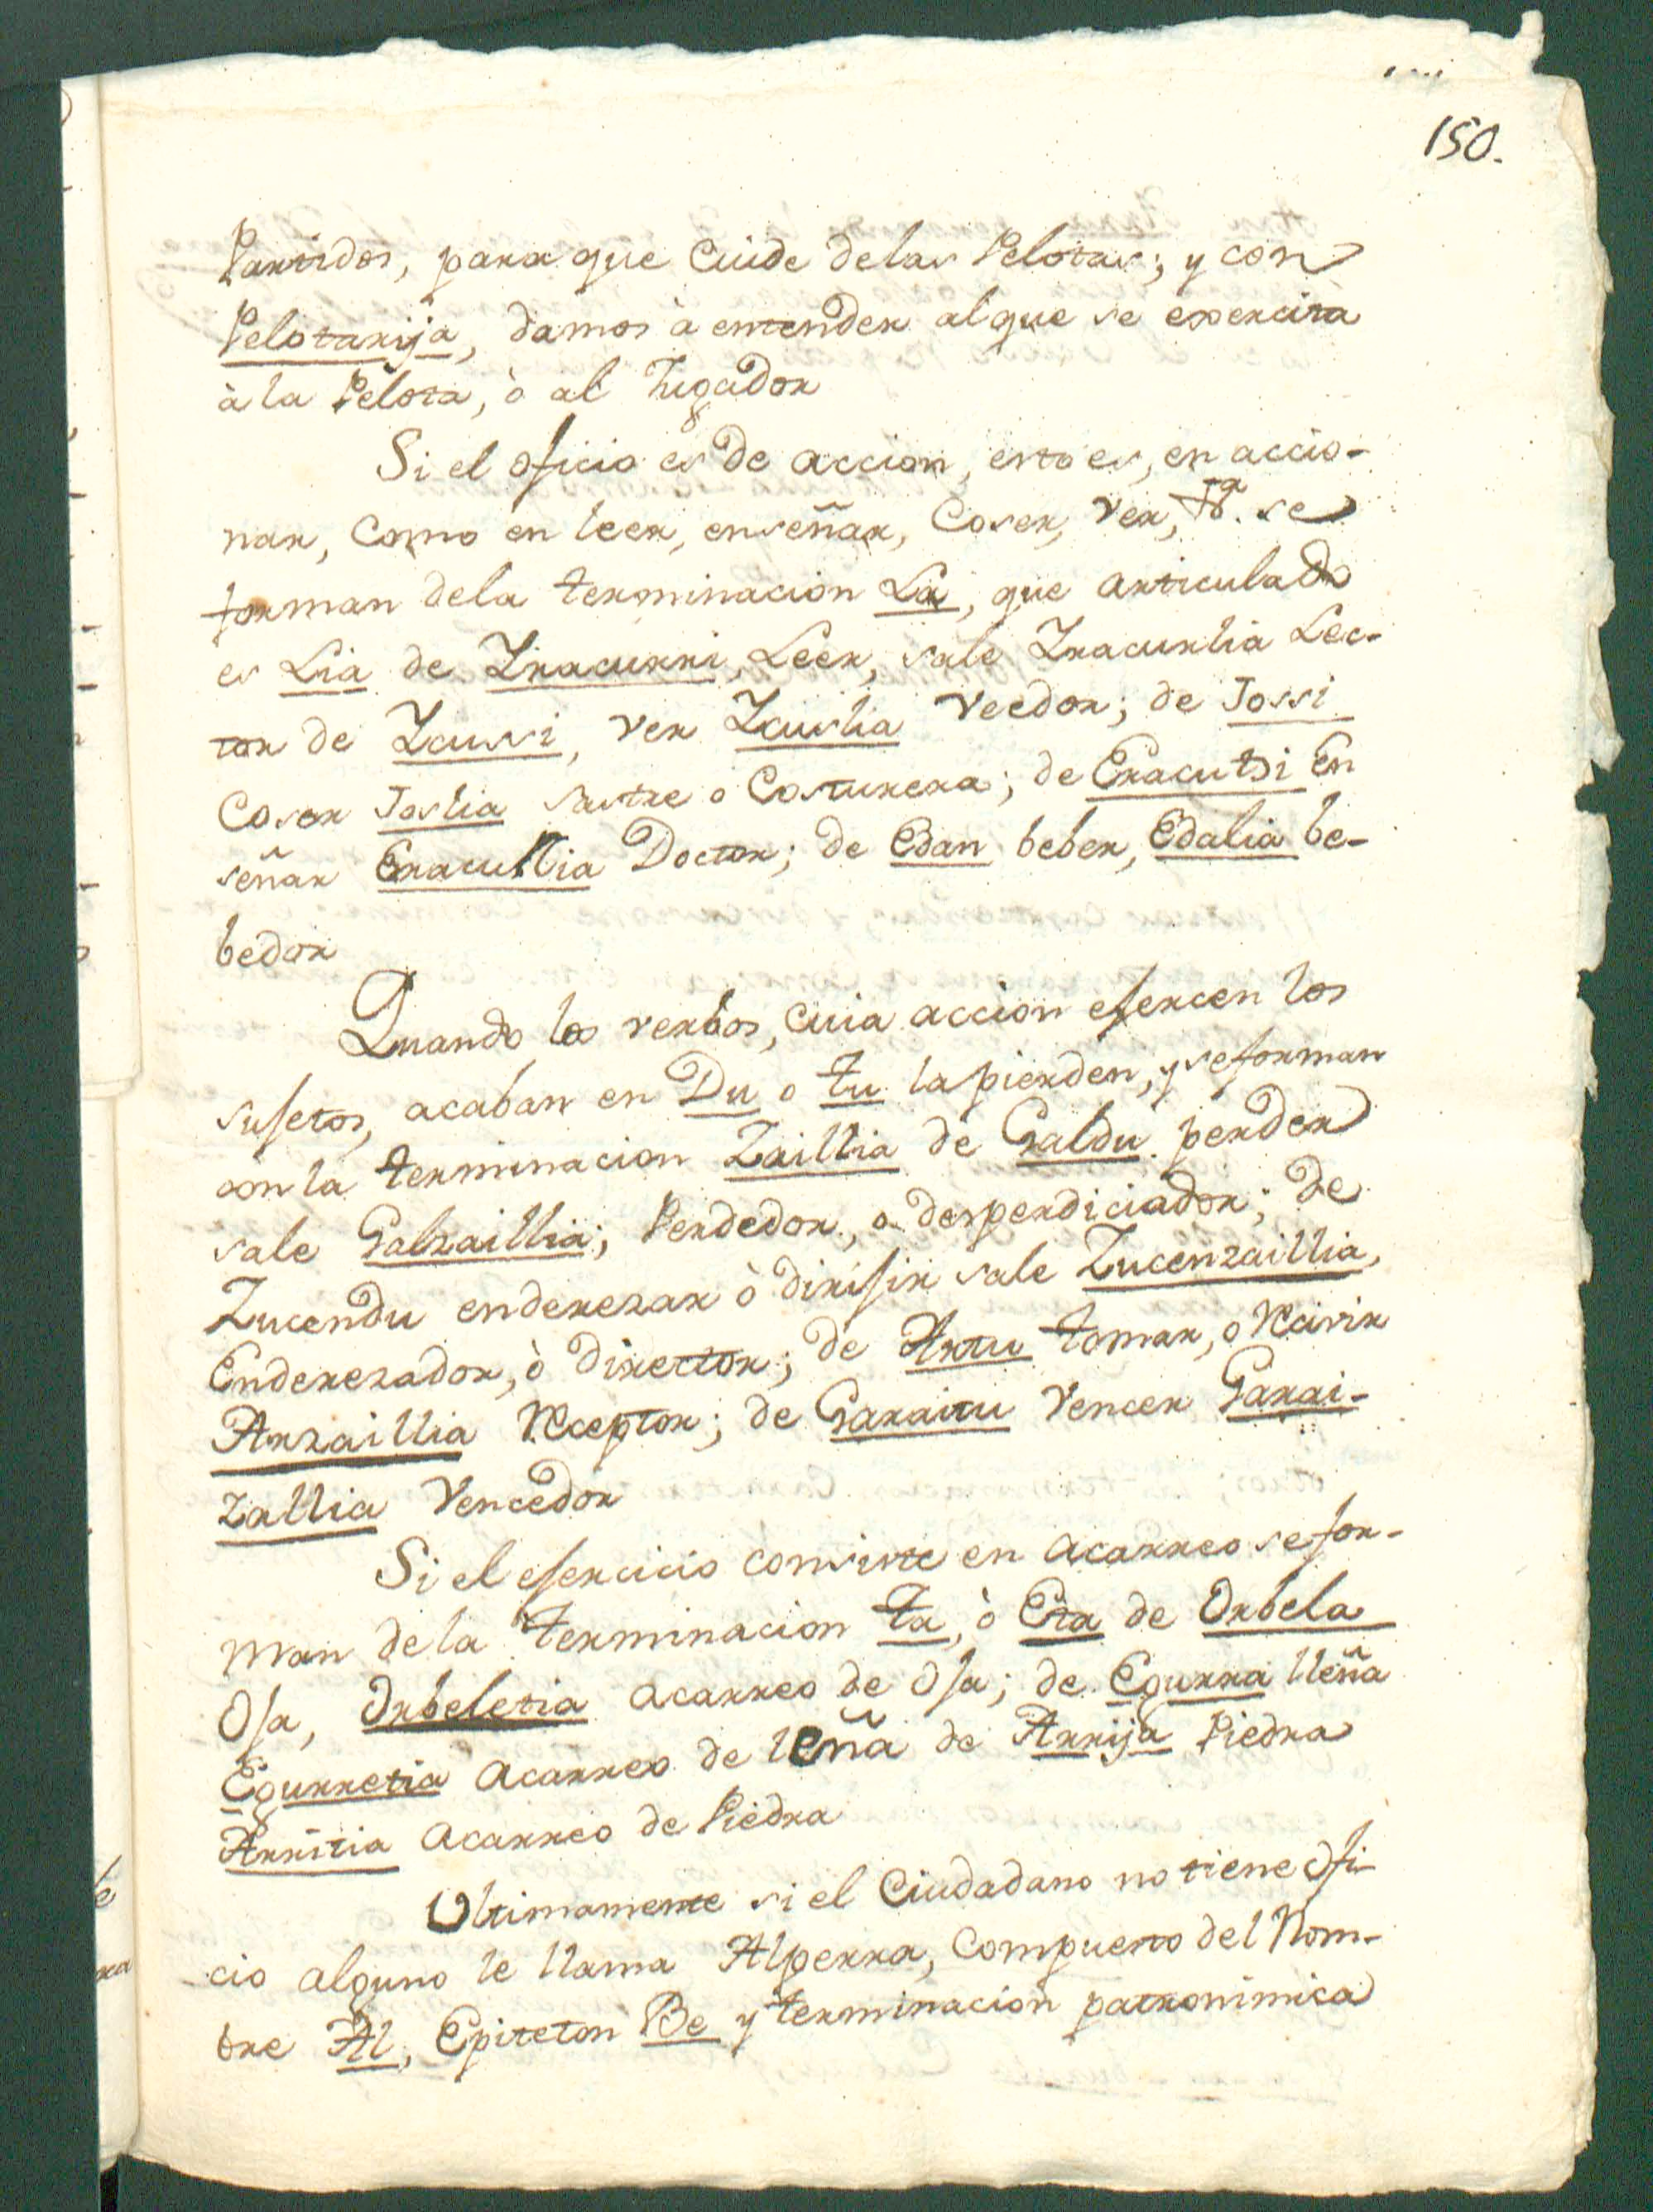 150.
Partidos, para que Cuide delas Pelotas; y con
Pelotarija, damos à entender alque se exercita
à la Pelota, ò al Jugador
Si el oficio es de accion, esto es, en accio-
nar, Como en leer, enseñar, Coser, ver, &ª. se
forman dela terminacion La, que articulado
es Lia de Iracurri, Leer, sale Iracurlia Lec-
tor de Icussi, ver Icuslia Veedor; de Jossi
Coser Joslia Sastre o Costurera; de Eracutsi En
señar Eracuslia Doctor; de Edan beber, Edalia be-
bedor
Quando los verbos, cuia accion esercen los
susetos, acaban en Du o tu la pierden, y se forman
con la terminacion Zaillia de Galdu perder
sale Galzaillia; Perdedor, o desperdiciador; de
Zucendu enderezar ò dirisir sale Zucenzaillia,
Enderezador, ò director; de Artu tomar, o Recivir
Arzaillia Receptor; de Garaitu Vencer Garai-
zallia Vencedor
Si el esercicio consiste en acarreo se for-
man de la terminacion ta, ò Eta de Orbela
Osa, Orbeletia acarreo de Osa; de Egurra lleña
Egurretia acarreo de leña de Arrija Piedra
Arritia acarreo de Piedra
Ultimamente si el Ciudadano no tiene Ofi-
cio alguno le llama Alperra, Compuesto del Nom-
bre Al, Epiteton Be y terminacion patronimica